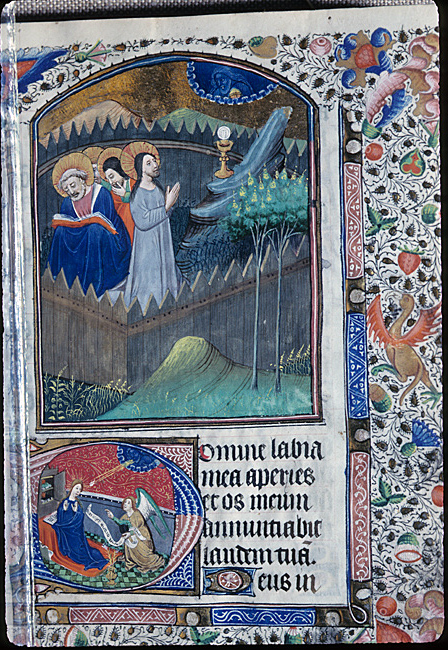 omine labia
mea aperies
et os meum
annuntiabit
laudem tuã.
eus in